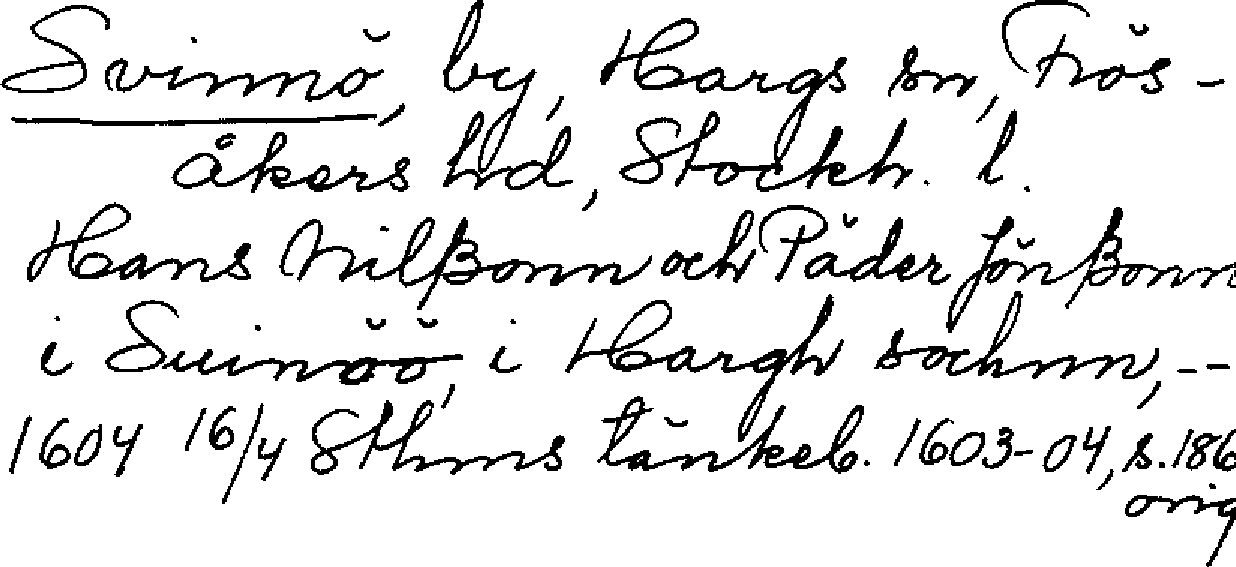 Svinnö, by, Hargs sn, Frös-
åkers hd, Stockh. l.
Hans Nilßonn och Päder Jönßonn
i Suinöö, i Hargh sochnn, --
1604 16/4 Sthms tänkeb. 1603-04, s. 186
orig